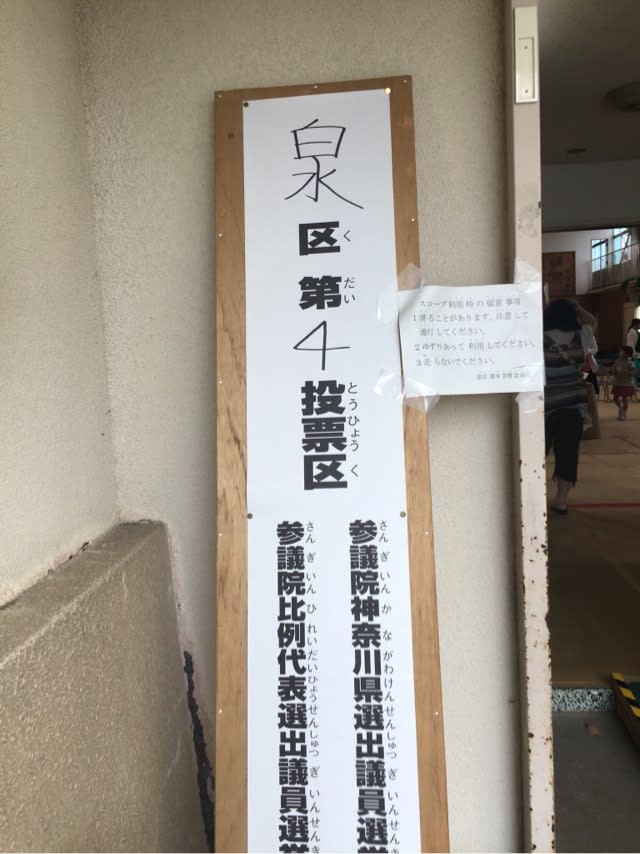 泉
区
く
第
だい
4
投票区
とうひょうく
参議院神奈川県選出議員選挙
さんぎいんかながわけんせんしゅつぎいんせんき
参議院比例代表選出議員選挙
さんぎいんひれいだいひょうせんしゅつぎいんせんき
スロープ利用時の留意事項
1滑ることがあります。注意して
通行してください。
2ゆずりあって利用してください。
3走らないでください。